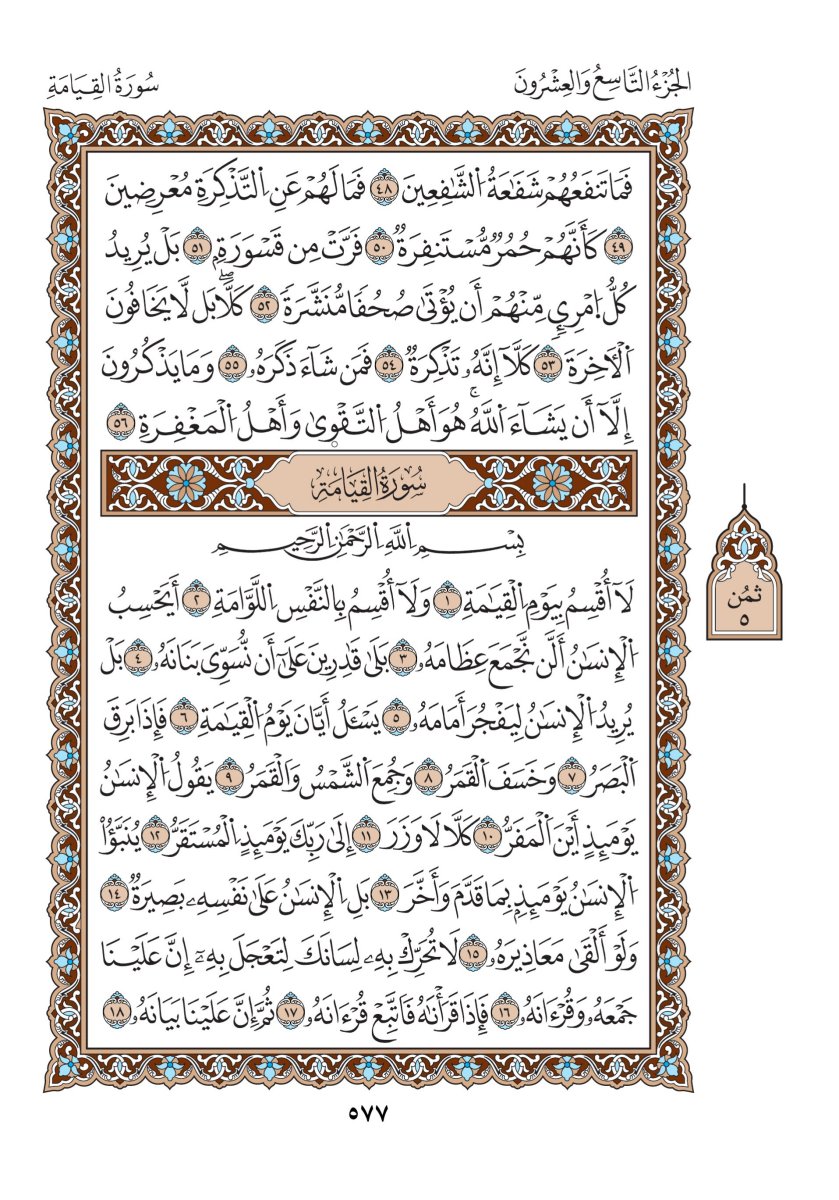 الجُزْءُ التَّاسِعُ وَالعِشْرُونَ
سُورَةُ القِيَامَةِ
فَمَا تَنفَعُهُمْ شَفَٰعَةُ اُ۬لشَّٰفِعِينَ ٤٨ فَمَا لَهُمْ عَنِ اِ۬لتَّذْكِرَةِ مُعْرِضِينَ
٤٩ كَأَنَّهُمْ حُمُرٌ مُّسْتَنفِرَةٌ ٥٠ فَرَّتْ مِن قَسْوَرَةِۭ ٥١ بَلْ يُرِيدُ
كُلُّ اُ۪مْرِيٕٖ مِّنْهُمْ أَن يُؤْتَىٰ صُحُفًا مُّنَشَّرَةً ٥٢ كَلَّاۖ بَل لَّا يَخَافُونَ
اَ۬لْأٓخِرَةَ ٥٣ كَلَّآ إِنَّهُۥ تَذْكِرَةٌ ٥٤ فَمَن شَآءَ ذَكَرَهُۥ ٥٥ وَمَا يَذْكُرُونَ
إِلَّآ أَن يَشَآءَ اَ۬للَّهُۚ هُوَ أَهْلُ اُ۬لتَّقْوٜىٰ وَأَهْلُ اُ۬لْمَغْفِرَةِ ٥٦
سُورَةُ القِيَامَةِ
بِسْمِ اِ۬للَّهِ اِ۬لرَّحْمَٰنِ اِ۬لرَّحِيمِ
لَآ أُقْسِمُ بِيَوْمِ اِ۬لْقِيَٰمَةِ ١ وَلَآ أُقْسِمُ بِالنَّفْسِ اِ۬للَّوَّامَةِ ٢ أَيَحْسِبُ
اُ۬لْإِنسَٰنُ أَلَّن نَّجْمَعَ عِظَامَهُۥ ٣ بَلَىٰ قَٰدِرِينَ عَلَىٰٓ أَن نُّسَوِّيَ بَنَانَهُۥ ٤ بَلْ
يُرِيدُ اُ۬لْإِنسَٰنُ لِيَفْجُرَ أَمَامَهُۥ ٥ يَسْـَٔلُ أَيَّانَ يَوْمُ اُ۬لْقِيَٰمَةِ ٦ فَإِذَا بَرِقَ
اَ۬لْبَصَرُ ٧ وَخَسَفَ اَ۬لْقَمَرُ ٨ وَجُمِعَ اَ۬لشَّمْسُ وَالْقَمَرُ ٩ يَقُولُ اُ۬لْإِنسَٰنُ
يَوْمَئِذٍ أَيْنَ اَ۬لْمَفَرُّ ١٠ كَلَّا لَا وَزَرَ ١١ إِلَىٰ رَبِّكَ يَوْمَئِذٍ اِ۬لْمُسْتَقَرُّ ١٢ يُنَبَّؤُاْ
اُ۬لْإِنسَٰنُ يَوْمَئِذِۭ بِمَا قَدَّمَ وَأَخَّرَ ١٣ بَلِ اِ۬لْإِنسَٰنُ عَلَىٰ نَفْسِهِۦ بَصِيرَةٌ ١٤
وَلَوْ أَلْقَىٰ مَعَاذِيرَهُۥ ١٥ لَا تُحَرِّكْ بِهِۦ لِسَانَكَ لِتَعْجَلَ بِهِۦٓ إِنَّ عَلَيْنَا
جَمْعَهُۥ وَقُرْءَانَهُۥ ١٦ فَإِذَا قَرَأْنَٰهُ فَاتَّبِعْ قُرْءَانَهُۥ ١٧ ثُمَّ إِنَّ عَلَيْنَا بَيَانَهُۥ ١٨
ثُمُن
٥
٥٧٧